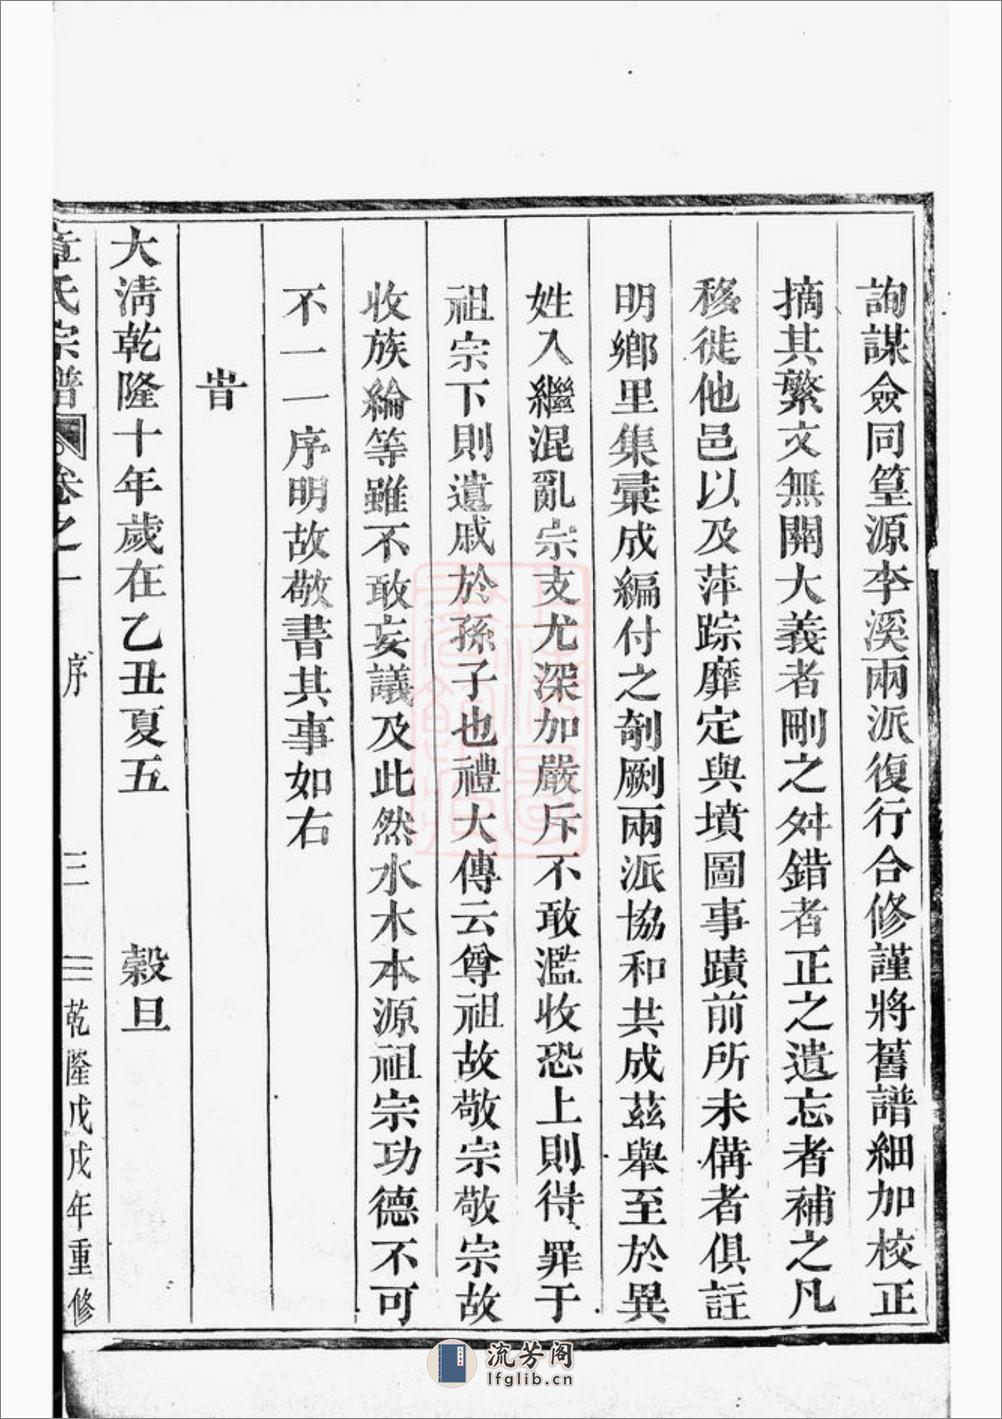 詢謀僉同篁源李溪兩派復行合修謹將舊譜細加校正
摘其繁文無關大義者刪之舛錯者正之遺忘者補之凡
移徙他邑以及萍踪靡定與墳圖事蹟前所未備者俱註
明鄉里集彙成編付之剞劂兩派協和共成茲舉至於異
姓入繼混亂宗支尤深加嚴斥不敢濫收恐上則得罪于
祖宗下則遺戚於孫子也禮大傳云尊祖故敬宗敬宗故
收族綸等雖不敢妄議及此然水木本源祖宗功德不可
不一一序明故敬書其事如右
旹
大清乾隆十年歲在乙丑夏五 穀旦
章氏宗譜 卷之一 序 三 乾隆戊戌年重修
流芳阁
lfglib.cn